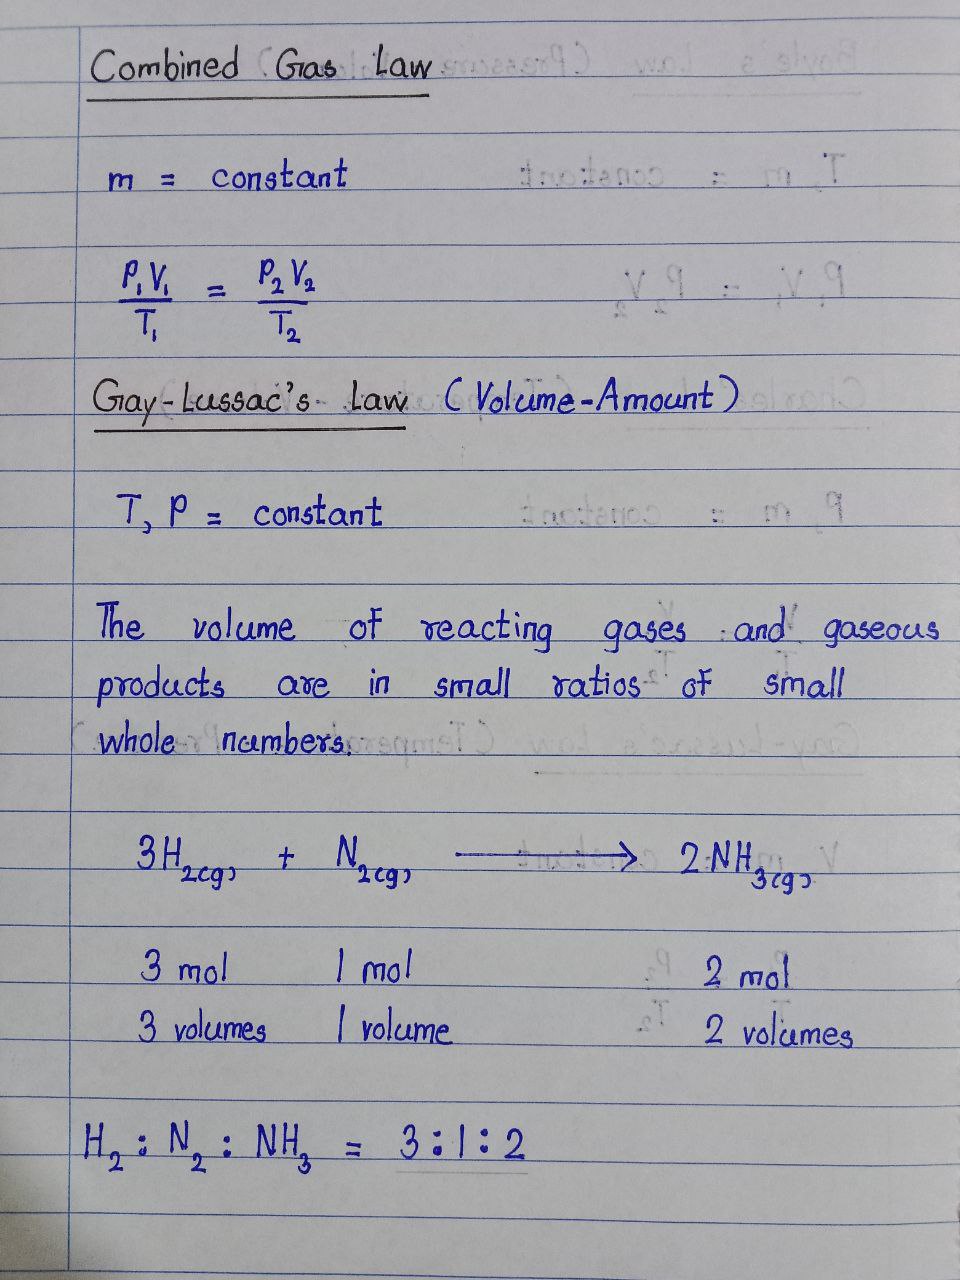 Combined Gas Law
m = constant
P₁V₁/T₁ = P₂V₂/T₂
Gay-Lussac's Law (Volume-Amount)
T, P = constant
The volume of reacting gases and gaseous
products are in small ratios of small
whole numbers.
3H₂(g) + N₂(g) ⟶ 2NH₃(g)
3 mol 1 mol 2 mol
3 volumes 1 volume 2 volumes
H₂ : N₂ : NH₃ = 3:1:2